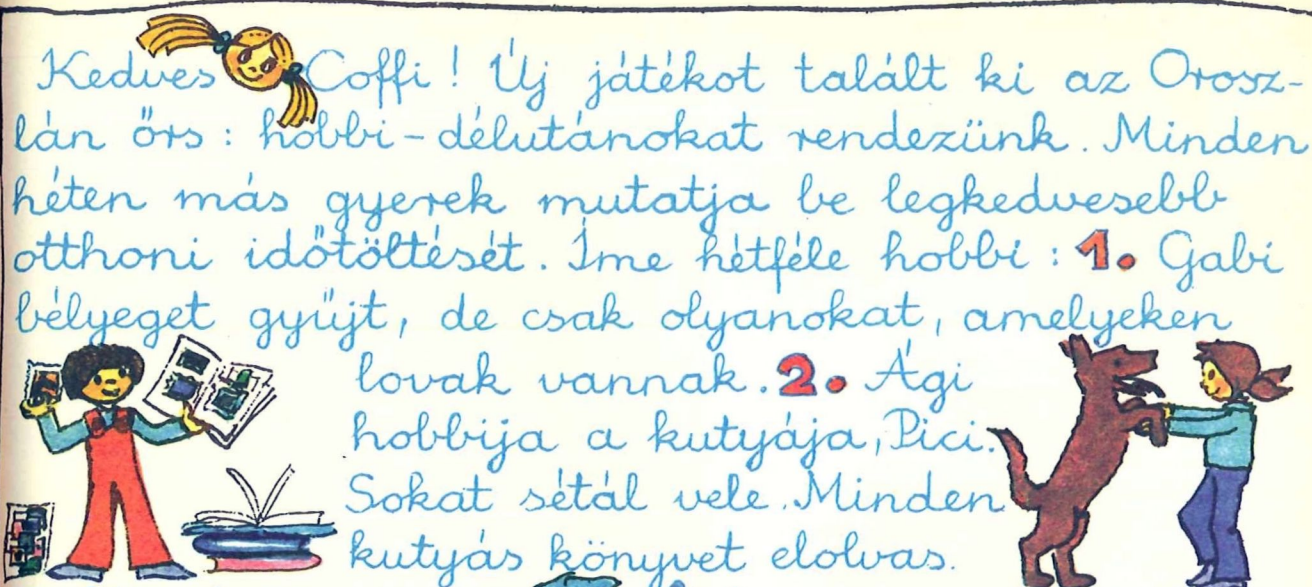 Kedves Coffi! Új játékot talált ki az Orosz-
lán őrs: hobbi-délutánokat rendezünk. Minden
héten más gyerek mutatja be legkedvesebb
otthoni időtöltését. Íme hétféle hobbi: 1. Gabi
bélyeget gyűjt, de csak olyanokat, amelyeken
lovak vannak. 2. Ági
hobbija a kutyája, Pici.
Sokat sétál vele. Minden
kutyás könyvet elolvas.